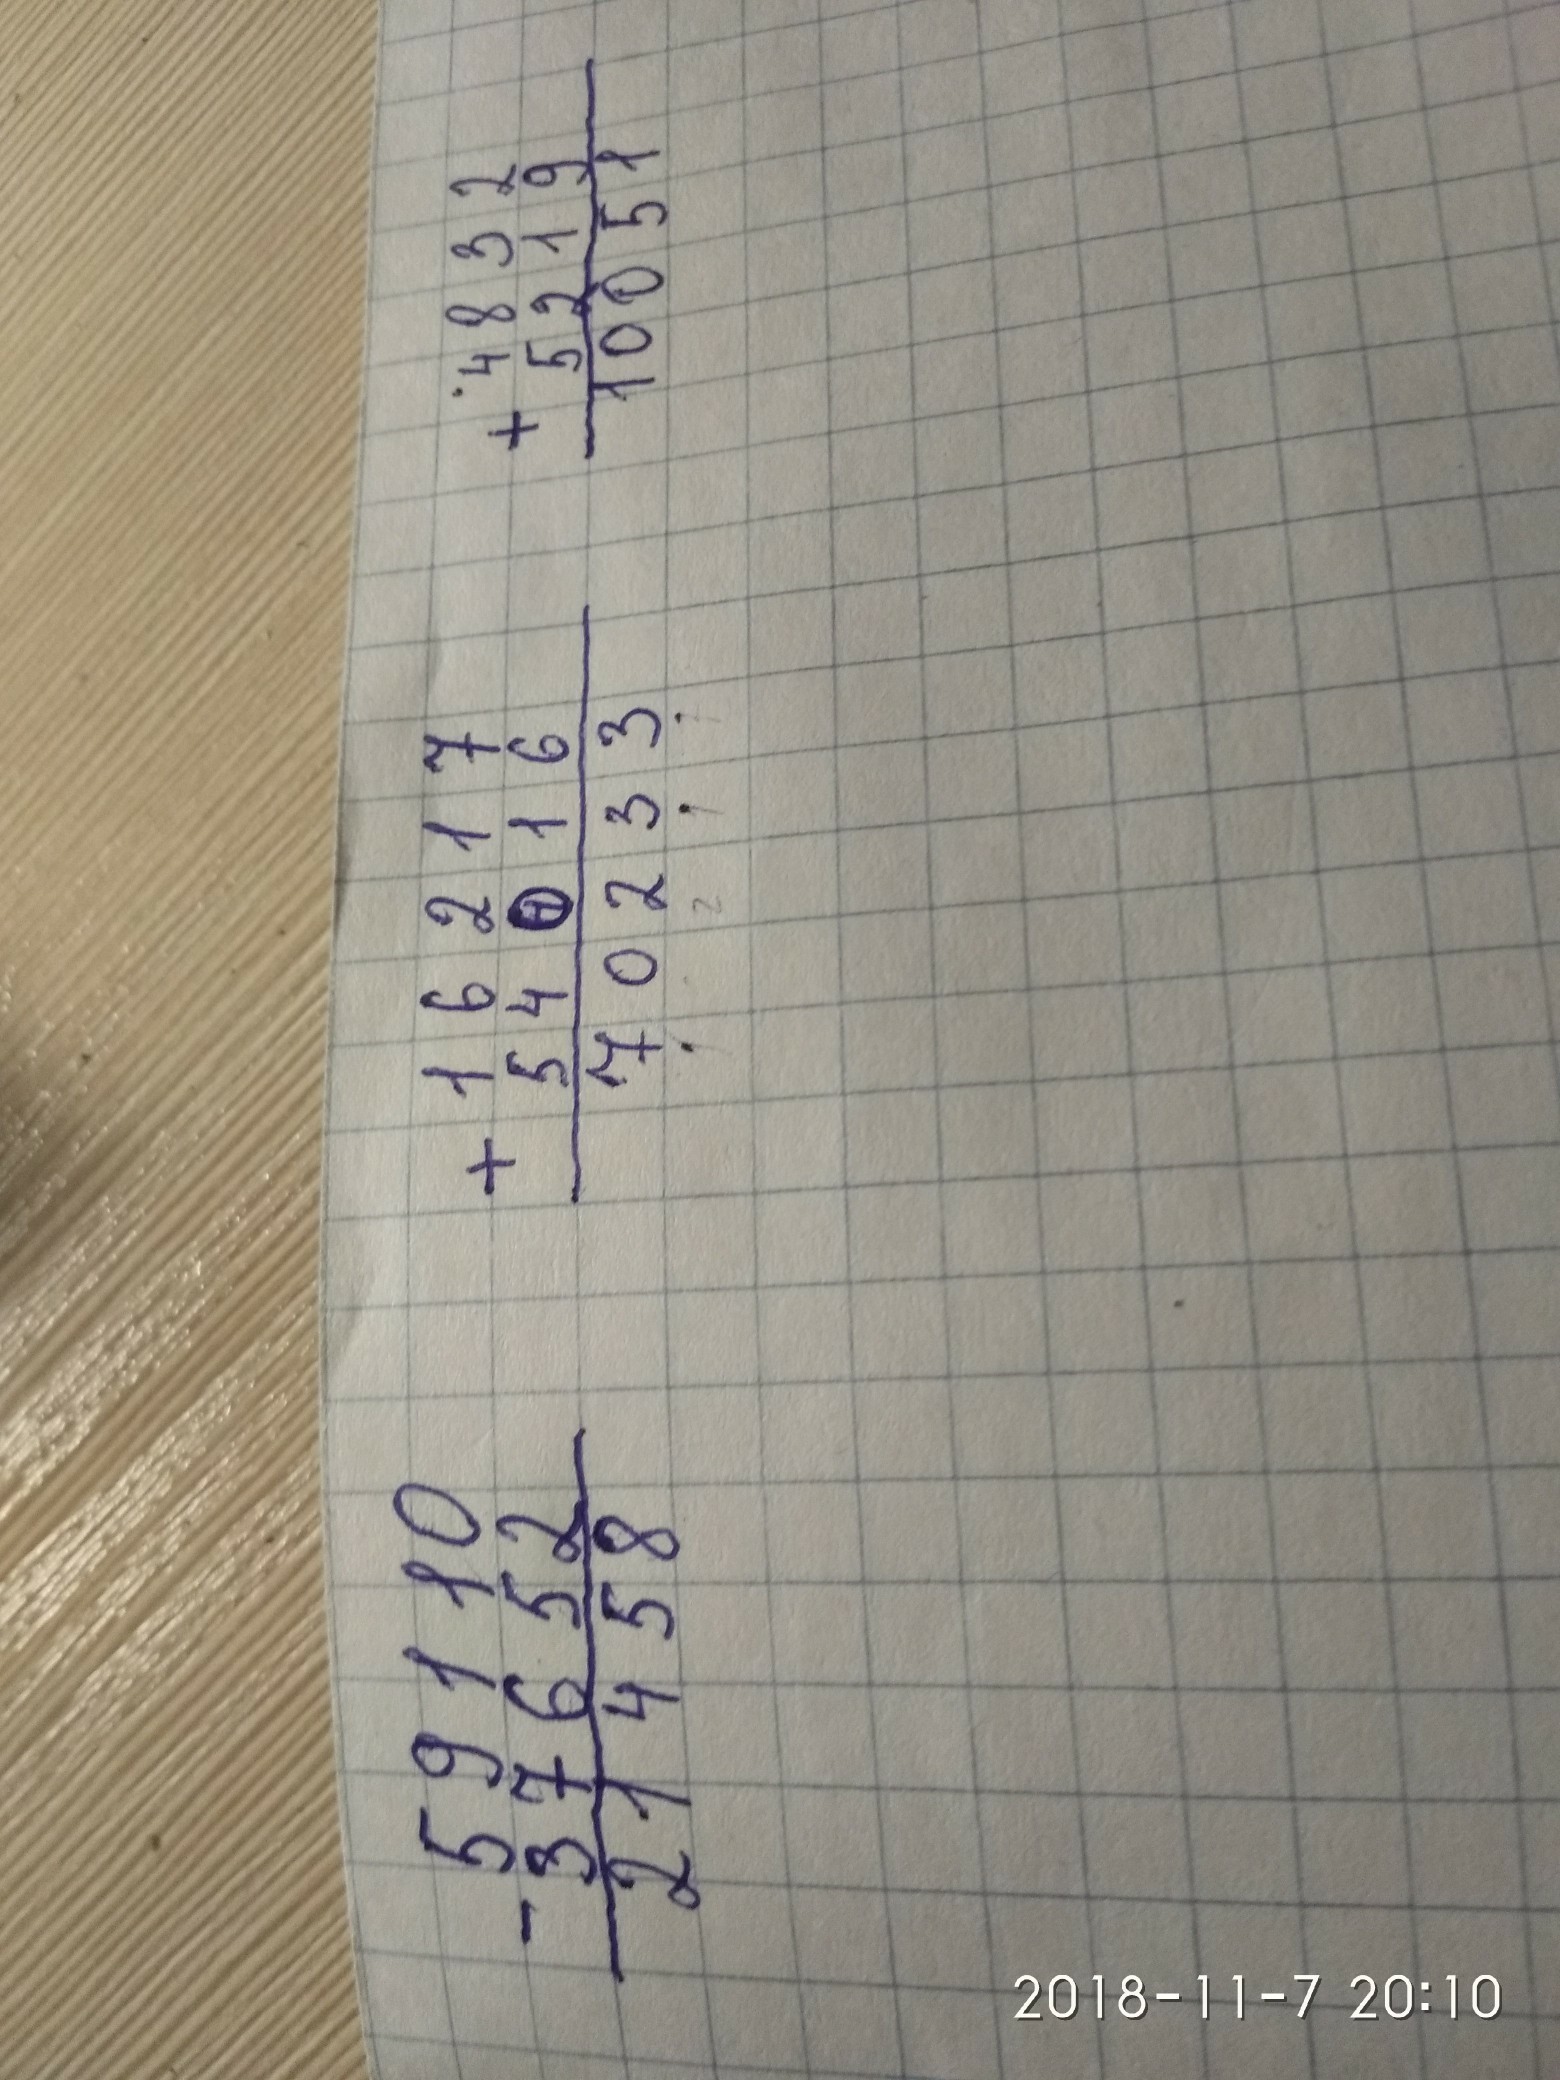 59110
-
37652
21458
+
16217
54016
70233
+
4832
5219
10051
2018-11-7 20:10